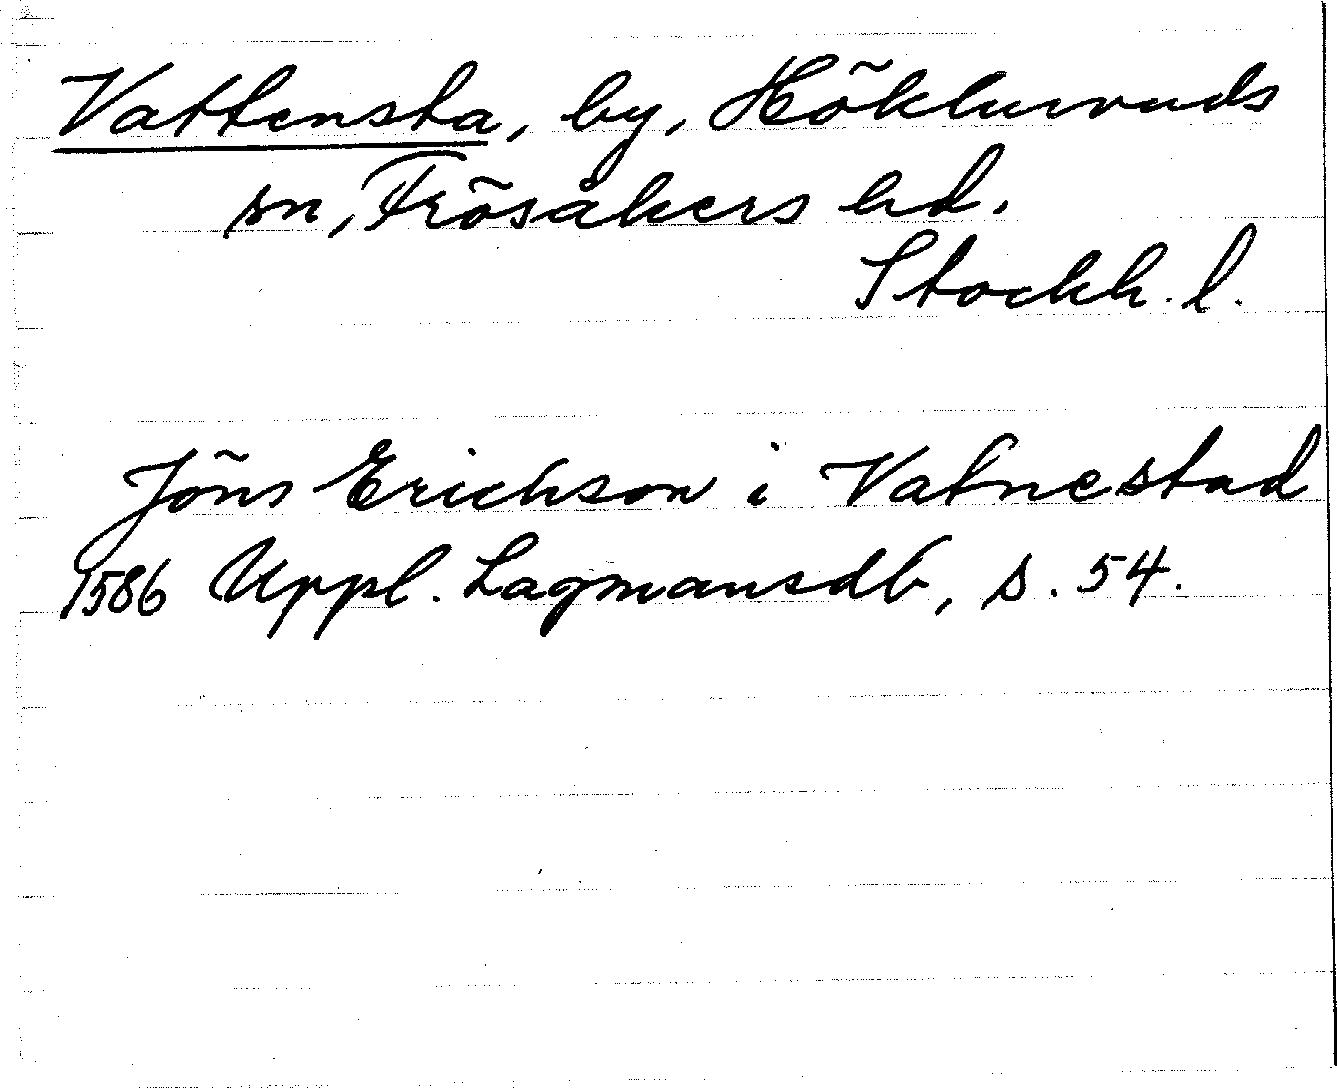 Vattensta, by, Hökhuvuds
sn, Frösåkers hd.
Stockh. l.
Jöns Erichson i Vatnestad
1586 Uppl. Lagmansdb, s. 54.